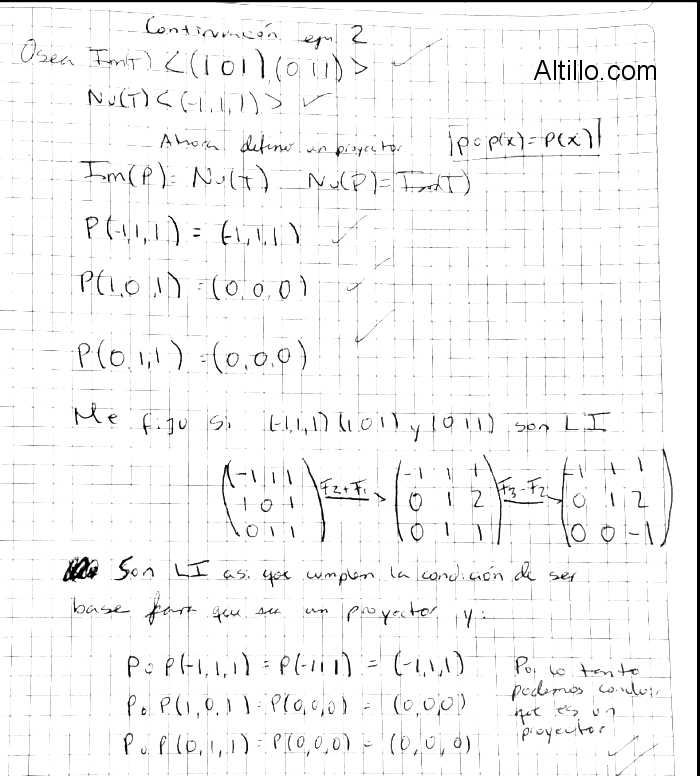 Continuación ejer 2
Altillo.com
Osea Im(T) <(1 0 1) (0 1 1)>
Nu(T) <(-1, 1, 1)>
Ahora defino un proyector |P o P(x) = P(x)|
Im(P) = Nu(T) Nu(P) = Im(T)
P(-1,1,1) = (-1,1,1)
P(1,0,1) = (0,0,0)
P(0,1,1) = (0,0,0)
Me fijo si (-1,1,1) (1 0 1) y (0 1 1) son LI
(-1 1 1) F2+F1 (-1 1 1) F3-F2 (-1 1 1)
(1 0 1) → (0 1 2) → (0 1 2)
(0 1 1) (0 1 1) (0 0 -1)
Son LI asi que cumplen la condición de ser
base para que sea un proyector y:
P o P(-1,1,1) = P(-1 1 1) = (-1,1,1)
P o P(1,0,1) = P(0,0,0) = (0,0,0)
P o P(0,1,1) = P(0,0,0) = (0,0,0)
Por lo tanto
podemos concluir
que es un
proyector